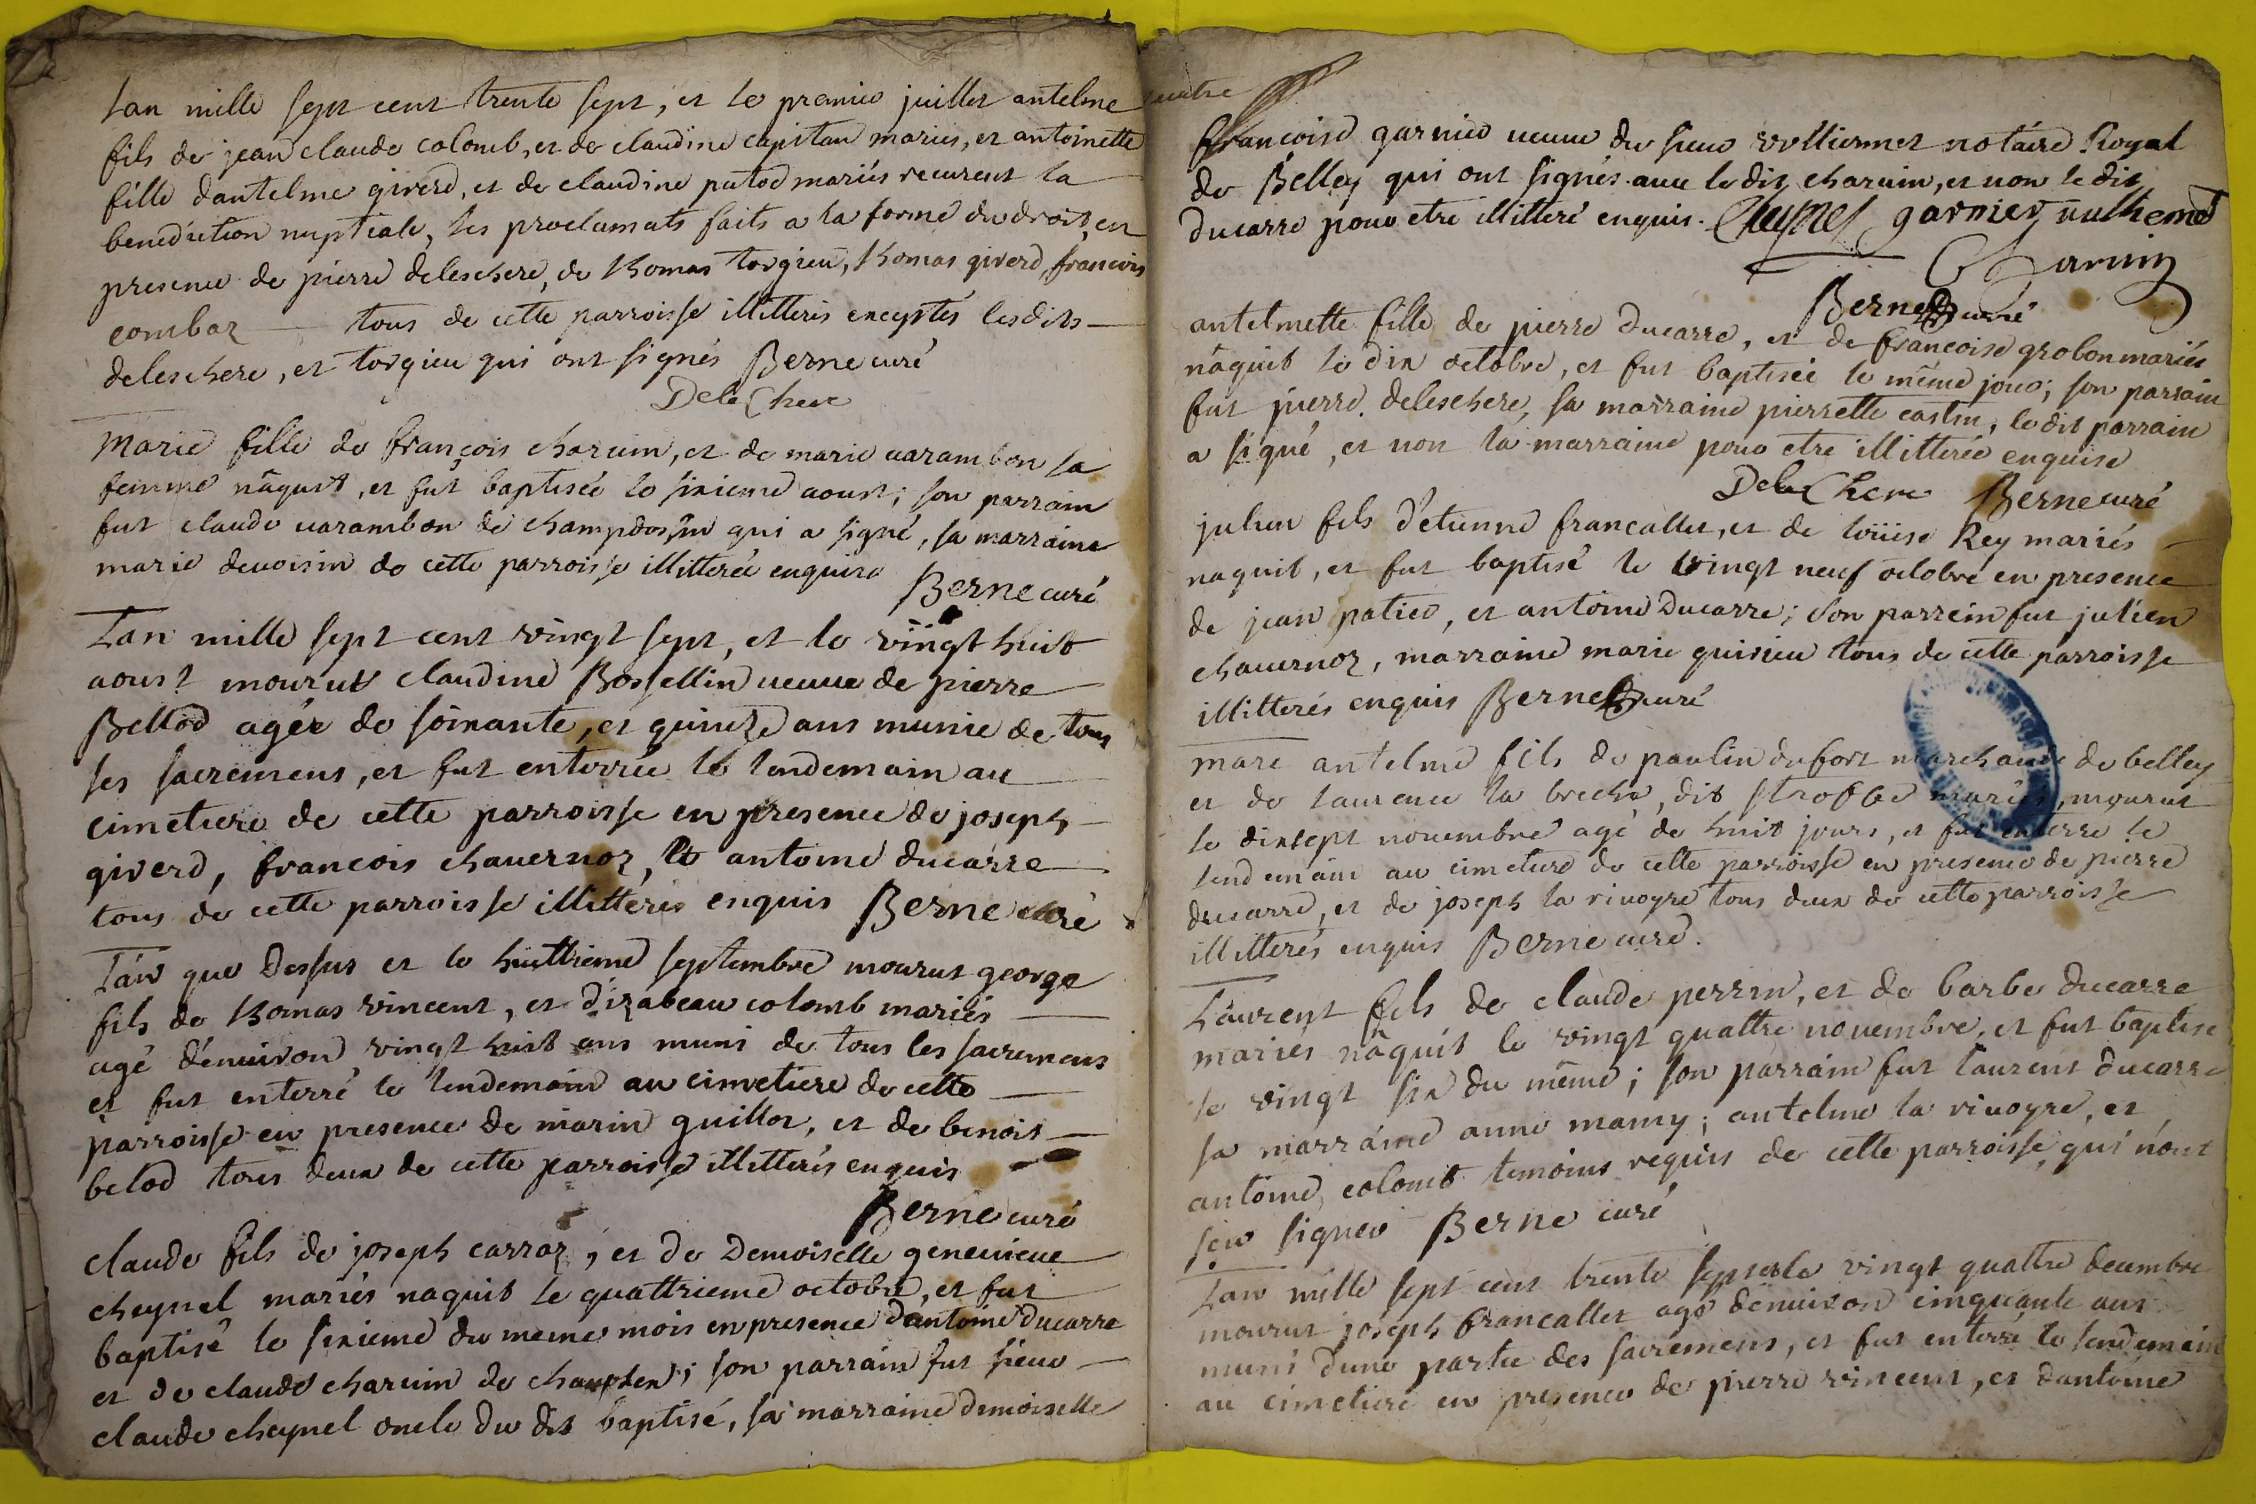 Lan mille sept cent trente sept, et le premier juillet antelme
fils de jean claude colomb, et de claudine capitan mariés, et antoinette
fille dantelme giverd, et de claudine patod mariés recurent la
benediction nuptiale, les proclamats faits a la forme du droit, en
presence de pierre deleschere, de thomas torgieu, thomas giverd, francois
combaz tous de cette parroisse illitterés exceptés lesdits
deleschere, et torgieu qui ont signés Berne curé
DelesChere
Marie fille de françois charvin, et de marie varambon sa
femme nâquit, et fut baptisée le sixieme aoust; son parrain
fut claude varambon de champdossin qui a signé, sa marraine
marie devoisin de cette parroisse illitterée enquise Berne curé
Lan mille sept cent vingt sept, et le vingt huit
aoust mourut claudine Bossellin veuve de pierre
Bellod agée de soixante, et quinze ans munie de tous
ses sacremens, et fut enterrée le lendemain au
cimetiere de cette parroisse en presence de joseph
giverd, francois chavernoz, et antoine ducarre
tous de cette parroisse illitterés enquis Berne curé
Lan que dessus et le huittieme septembre mourut george
fils de thomas vincent, et dizabeau colomb mariés
agé denviron vingt huit ans muni de tous les sacremens
et fut enterré le lendemain au cimetiere de cette
parroisse en presence de marin guillot, et de benoit
belod tous deux de cette parroisse illitterés enquis
Berne curé
claude fils de joseph carraz, et de Demoiselle genevieve
cheynel mariés naquit le quattrieme octobre, et fut
baptisé le sixieme du meme mois en presence dantoine ducarre
et de claude charvin de ; son parrain fut sieur
claude cheynel oncle du dit baptisé, sa marraine demoiselle
francoise garnier veuve du sieur vulliermet notaire Royal
de Belley qui ont signés avec le dit charvin, et non le dit
ducarre pour etre illitteré enquis. Cheynel garnier vulliermet
Charvin
Berne curé
antelmette fille de pierre Ducarre, et de francoise grobon mariés
nâquit le dix octobre, et fut baptisée le même jour; son parrain
fut pierre deleschere, sa marraine pierrette castin, le dit parrain
a signé, et non la marraine pour etre illitterée enquise
DelesChere Berne curé
julien fils d'etienne francallet, et de loüise Rey mariés
naquit, et fut baptisé le vingt neuf octobre en presence
de jean patier, et antoine Ducarre; son parrein fut julien
chavernoz, marraine marie quisieu tous de cette parroisse
illitterés enquis Berne curé
marc antelme fils de paulin dufort marchand de belley
et de laurence la breche, dit mariés, mourut
le dixsept novembre agé de huit jours, et fut enterré le
lendemain au cimetiere de cette parroisse en presence de pierre
ducarre, et de joseph la rivoyre tous deux de cette parroisse
illitterés enquis Berne curé.
Laurent fils de claude perrin, et de barbe ducarre
mariés nâquit le vingt quattre novembre, et fut baptisé
le vingt six du même; son parrain fut laurent ducarre
sa marraine anne mamy; antelme la rivoyre, et
antoine colomb temoins requis de cette parroisse qui n'ont
sceu signer Berne curé
Lan mille sept cent trente sept et le vingt quattre decembre
mourut joseph francallet agé denviron cinquante ans
muni d'une partie des sacremens, et fut enterré le lendemain
au cimetiere en presence de pierre vincent, et dantoine